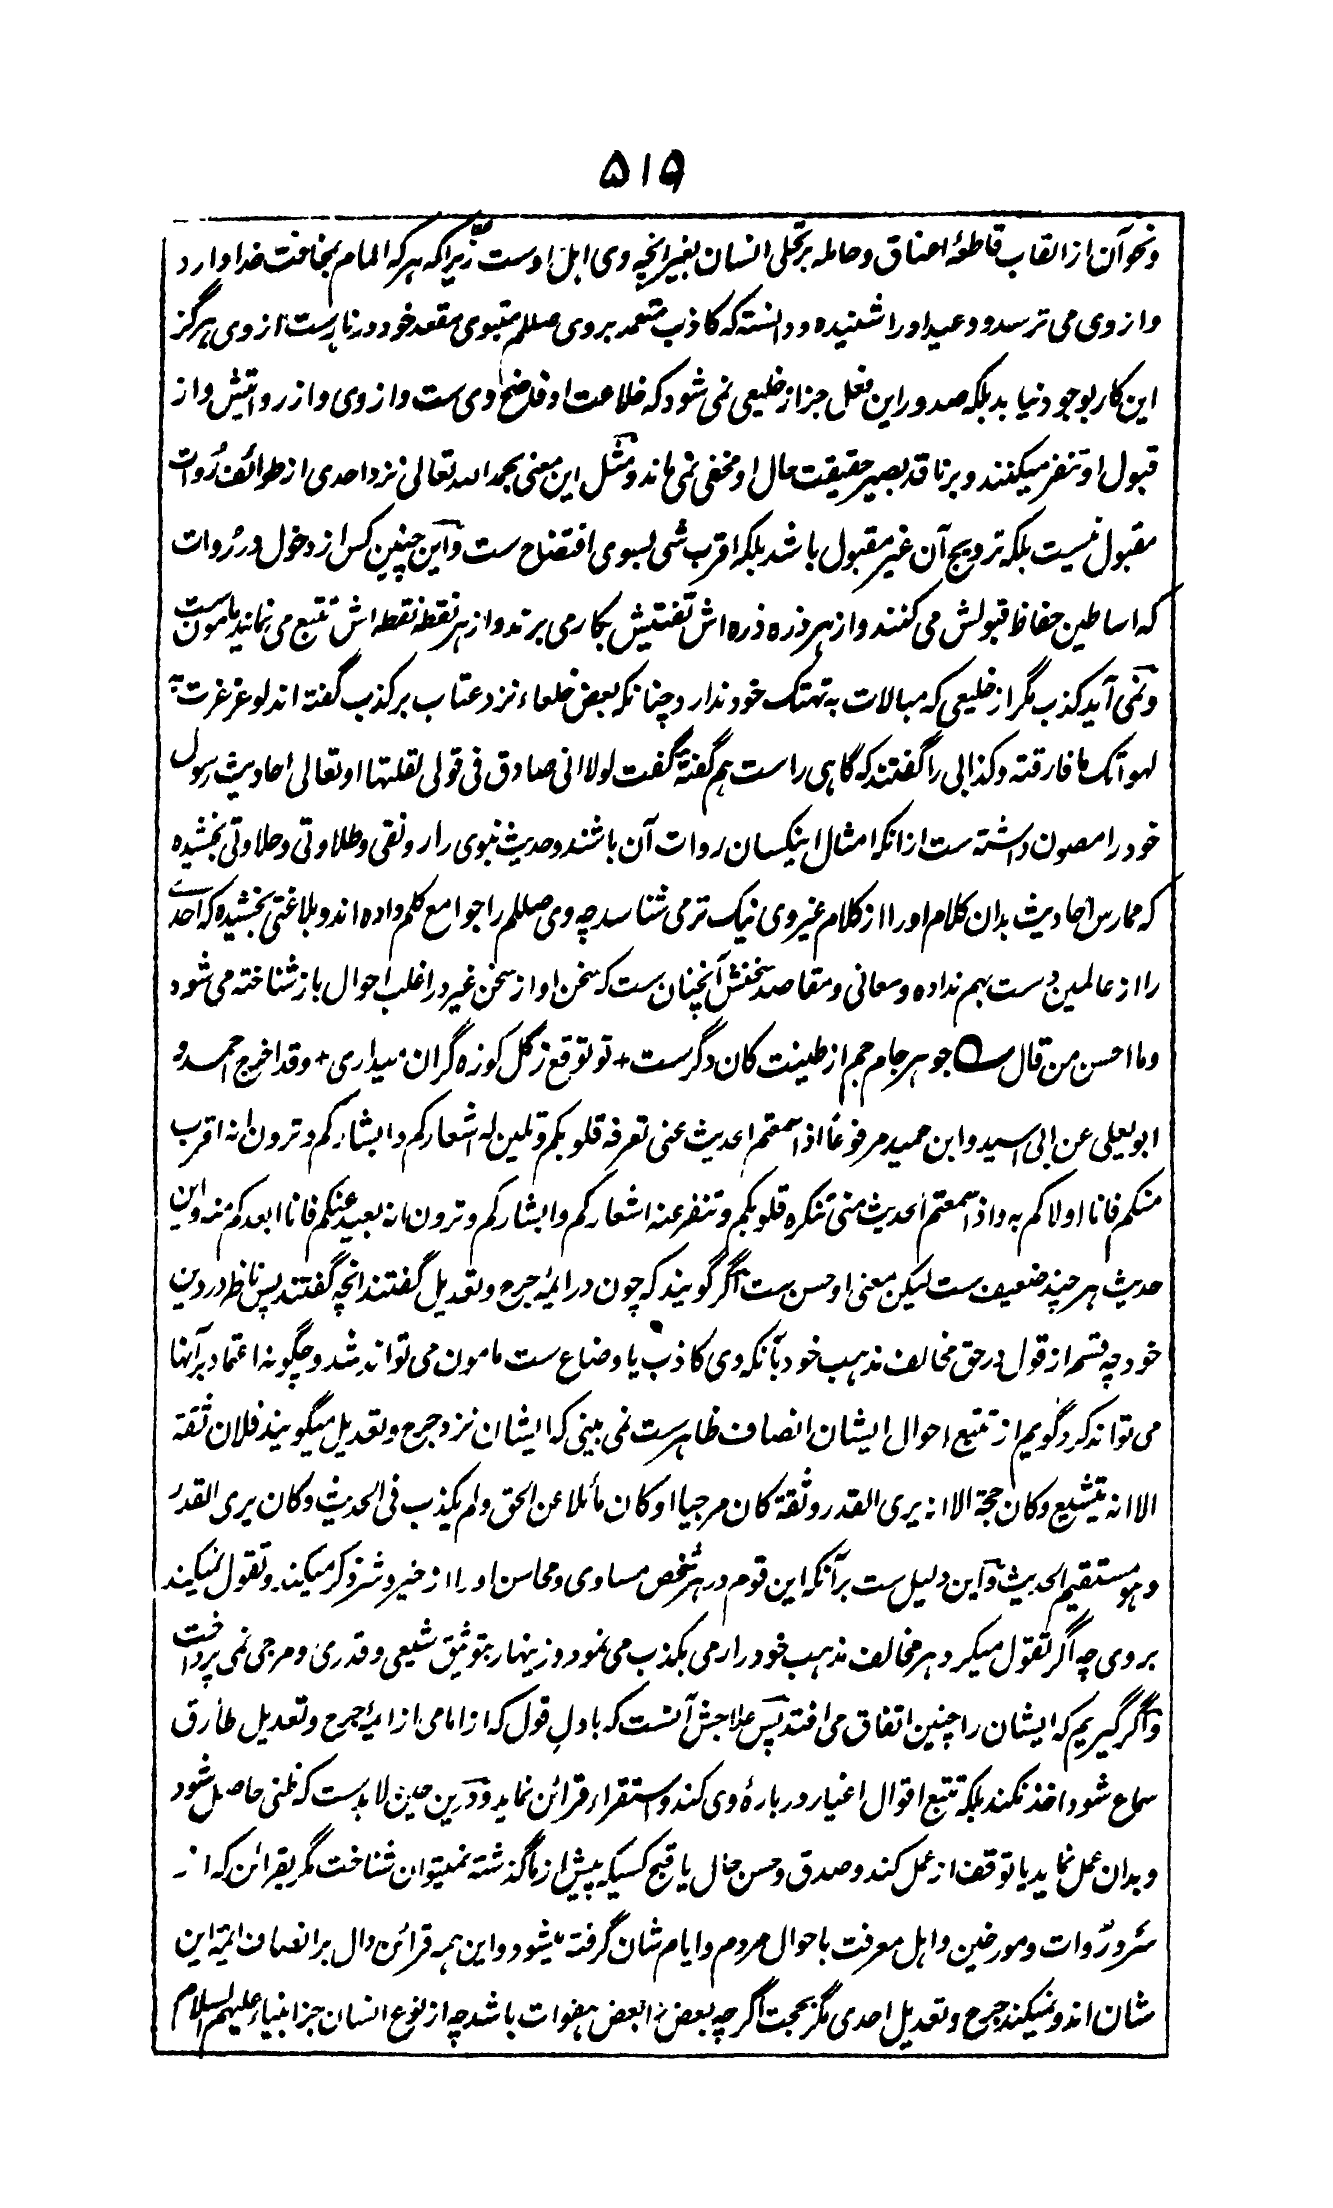 ۵۱۵
ونحو آن از القاب قاطعهٔ اعناق و حامله بر تحلی انسان بغیر انچه وی اهل اوست زیراکه هرکه المام بمخافت خدا دارد
و از وی می ترسد و وعید او را شنیده و دانسته که کاذب متعمد بر وی صللم متبوی مقعد خود در نارست از وی هرگز
این کار بوجود نیاید بلکه صدور این فعل جز از خلیعی نمی شود که خلاعت او فاضح وی ست و از وی و از روایتش و از
قبول او تنفر میکنند و بر ناقد بصیر حقیقت حال او مخفی نمی ماند و مثل این معنی بحمد الله تعالی نزد احدی از طوائف رُوات
مقبول نیست بلکه ترویج آن غیر مقبول باشد بلکه اقرب شی بسوی افتضاح ست و این چنین کس از دخول در رُوات
که اساطین حفاظ قبولش می کنند و از هر ذره ذره اش تفتیش بکار می برند و از هر نقطه نقطه اش تتبع می نمایند مامون ست
و نمی آید کذب مگر از خلیعی که مبالات به تهتک خود ندارد چنانکه بعض خلعاء نزد عتاب بر کذب گفته اند لو غرغرت به
لهواتک ما فارقته و کذابی را گفتند که گاهی راست هم گفتهٔ گفت لولا انی صادق فی قولی لقلتها او تعالی احادیث رسول
خود را مصون داشته ست از انکه امثال اینکسان روات آن باشند و حدیث نبوی را رونقی و طلاوتی و حلاوتی بخشیده
که ممارس احادیث بدان کلام او را از کلام غیر وی نیک تر می شناسد چه وی صللم را جوامع کلم داده اند و بلاغتی بخشیده که احدے
را از عالمین دست بهم نداده و معانی و مقاصد سخنش آنچنان ست که سخن او از سخن غیر در اغلب احوال باز شناخته می شود
وما احسن من قال ؎ جوهر جام جم از طینت کان دگرست + تو توقع ز گل کوزه گران میداری + وقد اخرج احمد و
ابو یعلی عن ابی اسید و ابن حمید مرفوعا اذا سمعتم الحدیث عنی تعرفه قلوبکم و تلین له اشعارکم و ابشارکم و ترون انه اقرب
منکم فانا اولاکم به و اذا سمعتم الحدیث منی تنکره قلوبکم و تنفر عنه اشعارکم و ابشارکم و ترون انه بعید عنکم فانا ابعدکم منه و این
حدیث هر چند ضعیف ست لیکن معنی او حسن ست اگر گویند که چون در ائمهٔ جرح و تعدیل گفتند انچه گفتند پس ناظر در دین
خود چه قسم از قول در حق مخالف مذهب خود بآنکه وی کاذب یا وضاع ست مامون می تواند شد و چگونه اعتماد بر آنها
می تواند کرد گویم از تتبع احوال ایشان انصاف ظاهرست نمی بینی که ایشان نزد جرح و تعدیل میگویند فلان ثقة
الا انه یتشیع و کان حجة الا انه یری القدر و ثقة کان مرجیا او کان مائلا عن الحق و لم یکذب فی الحدیث و کان یری القدر
و هو مستقیم الحدیث و این دلیل ست بر آنکه این قوم در هر شخص مساوی و محاسن او را از خیر و شر ذکر میکنند و تقول نمیکنند
بر وی چه اگر تقول میکرد هر مخالف مذهب خود را رمی بکذب می نمود و زینهار بتوثیق شیعی و قدری و مرجی نمی پرداخت
و اگر گیریم که ایشان را چنین اتفاق می افتد پس علاجش آنست که باول قول که از امامی از ائمهٔ جرح و تعدیل طارق
سماع شود اخذ نکند بلکه تتبع اقوال اغیار در بارهٔ وی کند و استقراء قرائن نماید و درین حین لابدست که ظنی حاصل شود
و بدان عمل نماید یا توقف از عمل کند و صدق و حسن حال یا قبح کسیکه پیش از ما گذشته نمیتوان شناخت مگر بقرائن که از
سَر رُوات و مورخین و اهل معرفت باحوال مردم و ایام شان گرفته میشود و این همه قرائن دال بر انصاف ائمهٔ این
شان اند و نمیکنند جرح و تعدیل احدی مگر بحجت اگرچه بعض را بعض هفوات باشد چه از نوع انسان جز انبیاء علیهم السلام